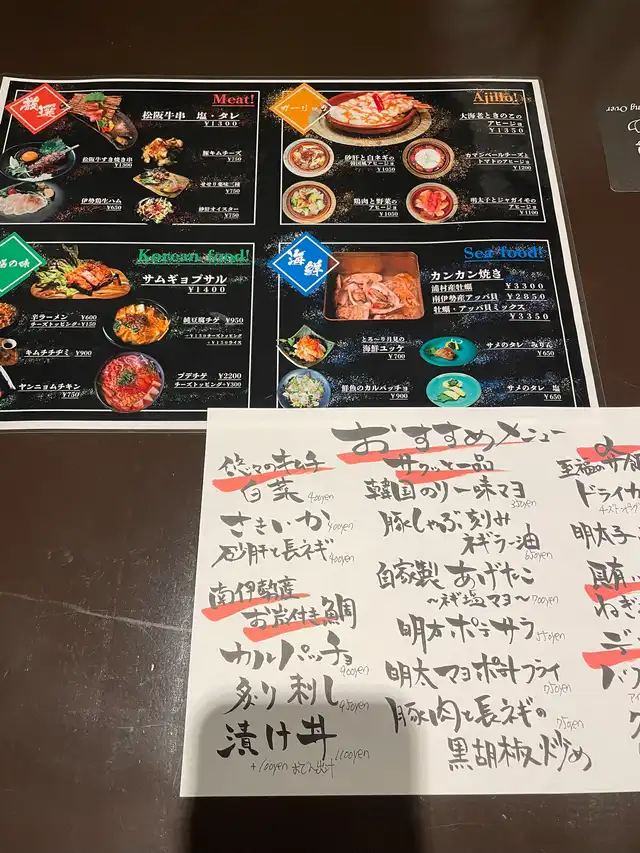 厳選
Meat!
松阪牛串 塩・タレ
¥1300
松阪牛すき焼き串
¥1300
豚キムチーズ
¥750
せせり薬味三種
¥750
伊勢鶏生ハム
¥650
砂肝オイスター
¥750
ガーリック
Ajillo!
大海老ときのこの
アヒージョ
¥1350
砂肝と白ネギの
韓国風アヒージョ
¥1050
カマンベールチーズと
トマトのアヒージョ
¥1200
鶏肉と野菜の
アヒージョ
¥1050
明太子とジャガイモの
アヒージョ
¥1100
の味
Korean food!
サムギョプサル
¥1400
辛ラーメン ¥600
チーズトッピング+150
純豆腐チゲ ¥950
キムチチヂミ ¥900
ヤンニョムチキン
¥750
プデチゲ ¥2200
チーズトッピング+300
海鮮
Sea food!
カンカン焼き
浦村産牡蠣 ¥3300
南伊勢産アッパ貝 ¥2850
牡蠣・アッパ貝ミックス
¥3350
とろ〜り月見の
海鮮ユッケ
¥700
サメのタレ みりん
¥650
鮮魚のカルパッチョ
¥900
サメのタレ 塩
¥650
おすすめメニュー
白菜
400yen
さきいか
400yen
砂肝と長ネギ
400yen
南伊勢産
お岩付き鯛
カルパッチョ
900yen
炙り刺し
950yen
漬け丼
1100yen
+100yen おでん出汁
サクッと一品
韓国のり一味マヨ
350yen
豚しゃぶ刻み
ネギラー油
650yen
自家製あげたこ
〜ネギ塩マヨ〜
700yen
明太ポテサラ
550yen
明太マヨポテトフライ
750yen
豚肉と長ネギの
黒胡椒炒め
750yen
ドライカ
明太子
ねぎ